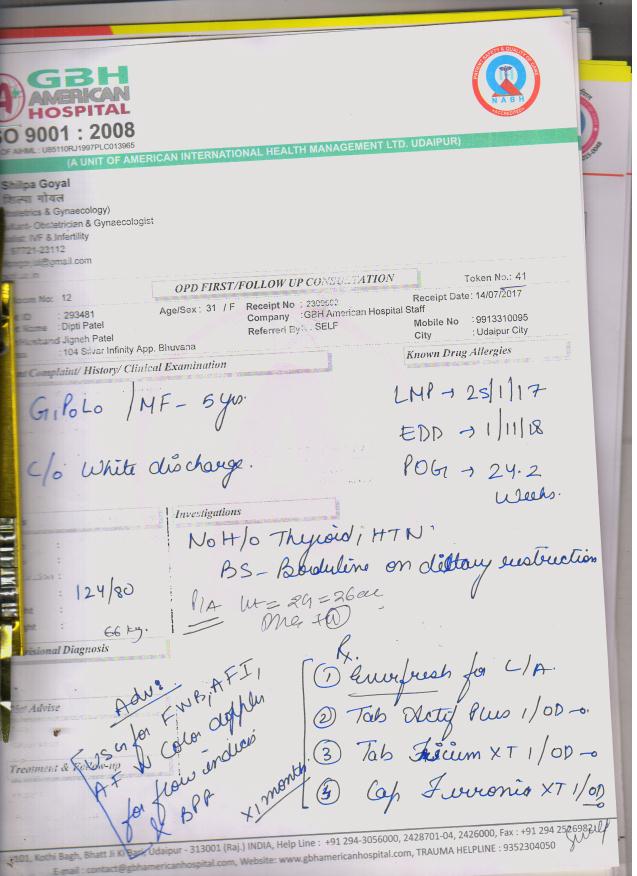 GBH
AMERICAN
HOSPITAL
PATIENT SAFETY & QUALITY OF CARE
NABH
ISO 9001 : 2008
OF AIHML : U85110RJ1997PLC013965
(A UNIT OF AMERICAN INTERNATIONAL HEALTH MANAGEMENT LTD. UDAIPUR)
Shilpa Goyal
शिल्पा गोयल
Obstetrics & Gynaecology)
Obstetrician & Gynaecologist
IVF & Infertility
97721-23112
@gmail.com
OPD FIRST/FOLLOW UP CONSULTATION
Token No.: 41
Room No: 12
ID : 293481
Age/Sex : 31 / F
Receipt No :
Receipt Date: 14/07/2017
Name : Dipti Patel
Company : GBH American Hospital Staff
Mobile No : 9913310095
Husband Jigneh Patel
Referred By : . SELF
City : Udaipur City
: 104 Silver Infinity App. Bhuvana
Complaint/ History/ Clinical Examination
Known Drug Allergies
G1P0L0 / MF - 5 yrs.
LMP → 25/1/17
EDD → 1/11/18
C/o White discharge.
POG → 24.2
Weeks.
Investigations
No H/o Thyroid, HTN
BS - Borderline on dietary restriction
124/80
P/A
66 kg.
Provisional Diagnosis
Rx
① for L/A.
② Tab Plus 1/OD
③ Tab XT 1/OD
④ Cap XT 1/OD
Advise
Treatment & Follow-up
Adv:
USG for FWB, AFI,
AF W Color doppler
for flow indices
& BPP
x 1 month
101, Kothi Bagh, Bhatt Ji Ki Bari, Udaipur - 313001 (Raj.) INDIA, Help Line : +91 294-3056000, 2428701-04, 2426000, Fax : +91 294 2526982
E-mail : contact@gbhamericanhospital.com, Website: www.gbhamericanhospital.com, TRAUMA HELPLINE : 9352304050